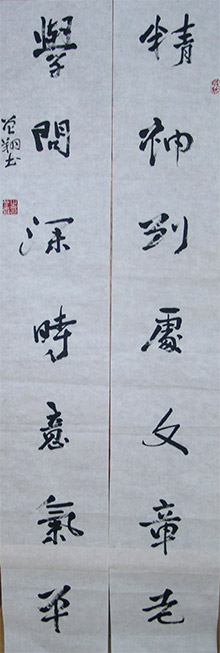 精神到處文章老
學問深時意氣平
曾翔书